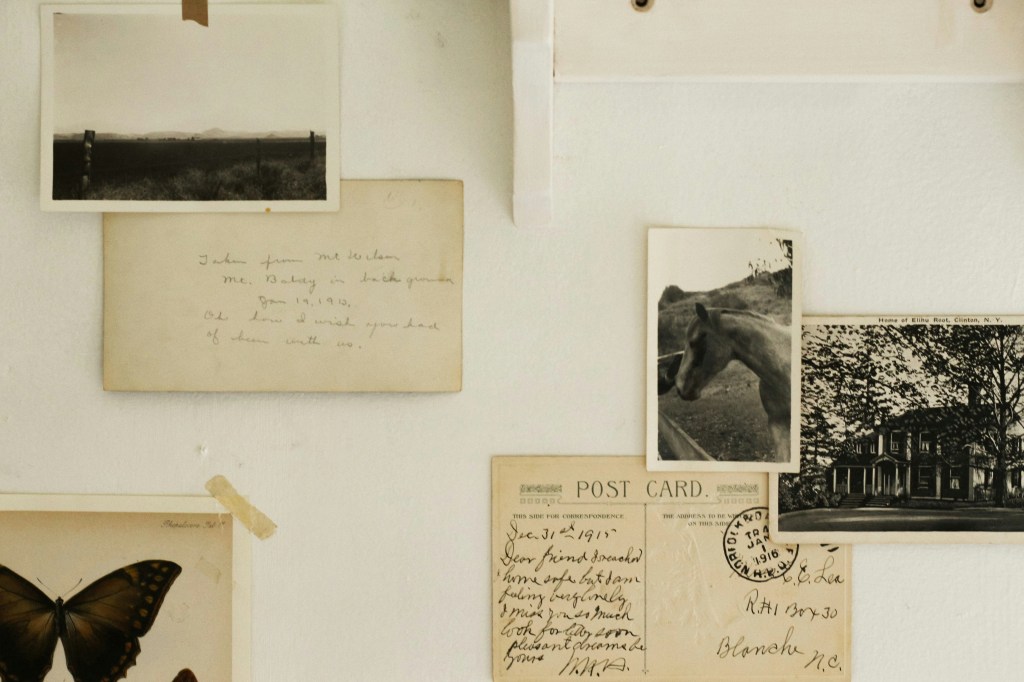 Taken from Mt Wilson
Mt. Baldy in back ground
Jan 19, 
Oh how I wish you had
of been with us.
Home of Elihu Root, Clinton, N. Y.
POST CARD.
THIS SIDE FOR CORRESPONDENCE
THE ADDRESS TO BE
ON THIS SIDE
Dec. 31st 1915
Dear friend I reached
home safe but I am
feling very lonely
I miss you so much
look for soon
pleasant dreams
yours
NORFOLK & D
TR
JAN
1
1916
R.P.O.
C. E. Lea
R.#1 Box 30
Blanche
N.C.